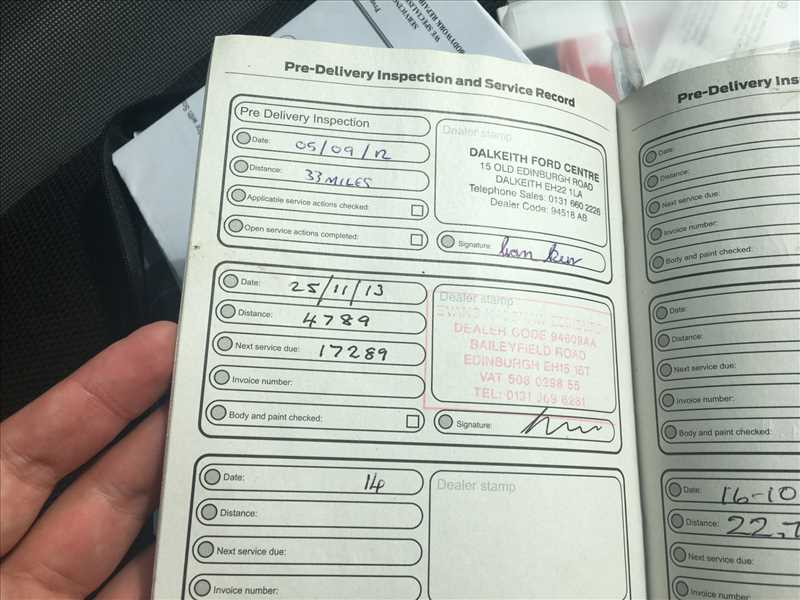 SERVICING
WE SPECIALISE
BODYWORK REPAIR
Pre-Delivery Inspection and Service Record
Pre Delivery Inspection
Date: 05/09/12
Distance: 33 MILES
Applicable service actions checked:
Open service actions completed:
Dealer stamp
DALKEITH FORD CENTRE
15 OLD EDINBURGH ROAD
DALKEITH EH22 1LA
Telephone Sales: 0131 660 2226
Dealer Code: 94518 AB
Signature:
Date: 25/11/13
Distance: 4789
Next service due: 17289
Invoice number:
Body and paint checked:
Dealer stamp
DEALER CODE 94609AA
BAILEYFIELD ROAD
EDINBURGH EH15
VAT 508 0298 55
TEL: 0131
Signature:
Date: 14
Distance:
Next service due:
Invoice number:
Dealer stamp
Pre-Delivery Ins
Date:
Distance:
Next service due:
Invoice number:
Body and paint checked:
Date:
Distance:
Next service due:
Invoice number:
Body and paint checked:
Date: 16-10
Distance: 22,7
Next service due:
Invoice number: